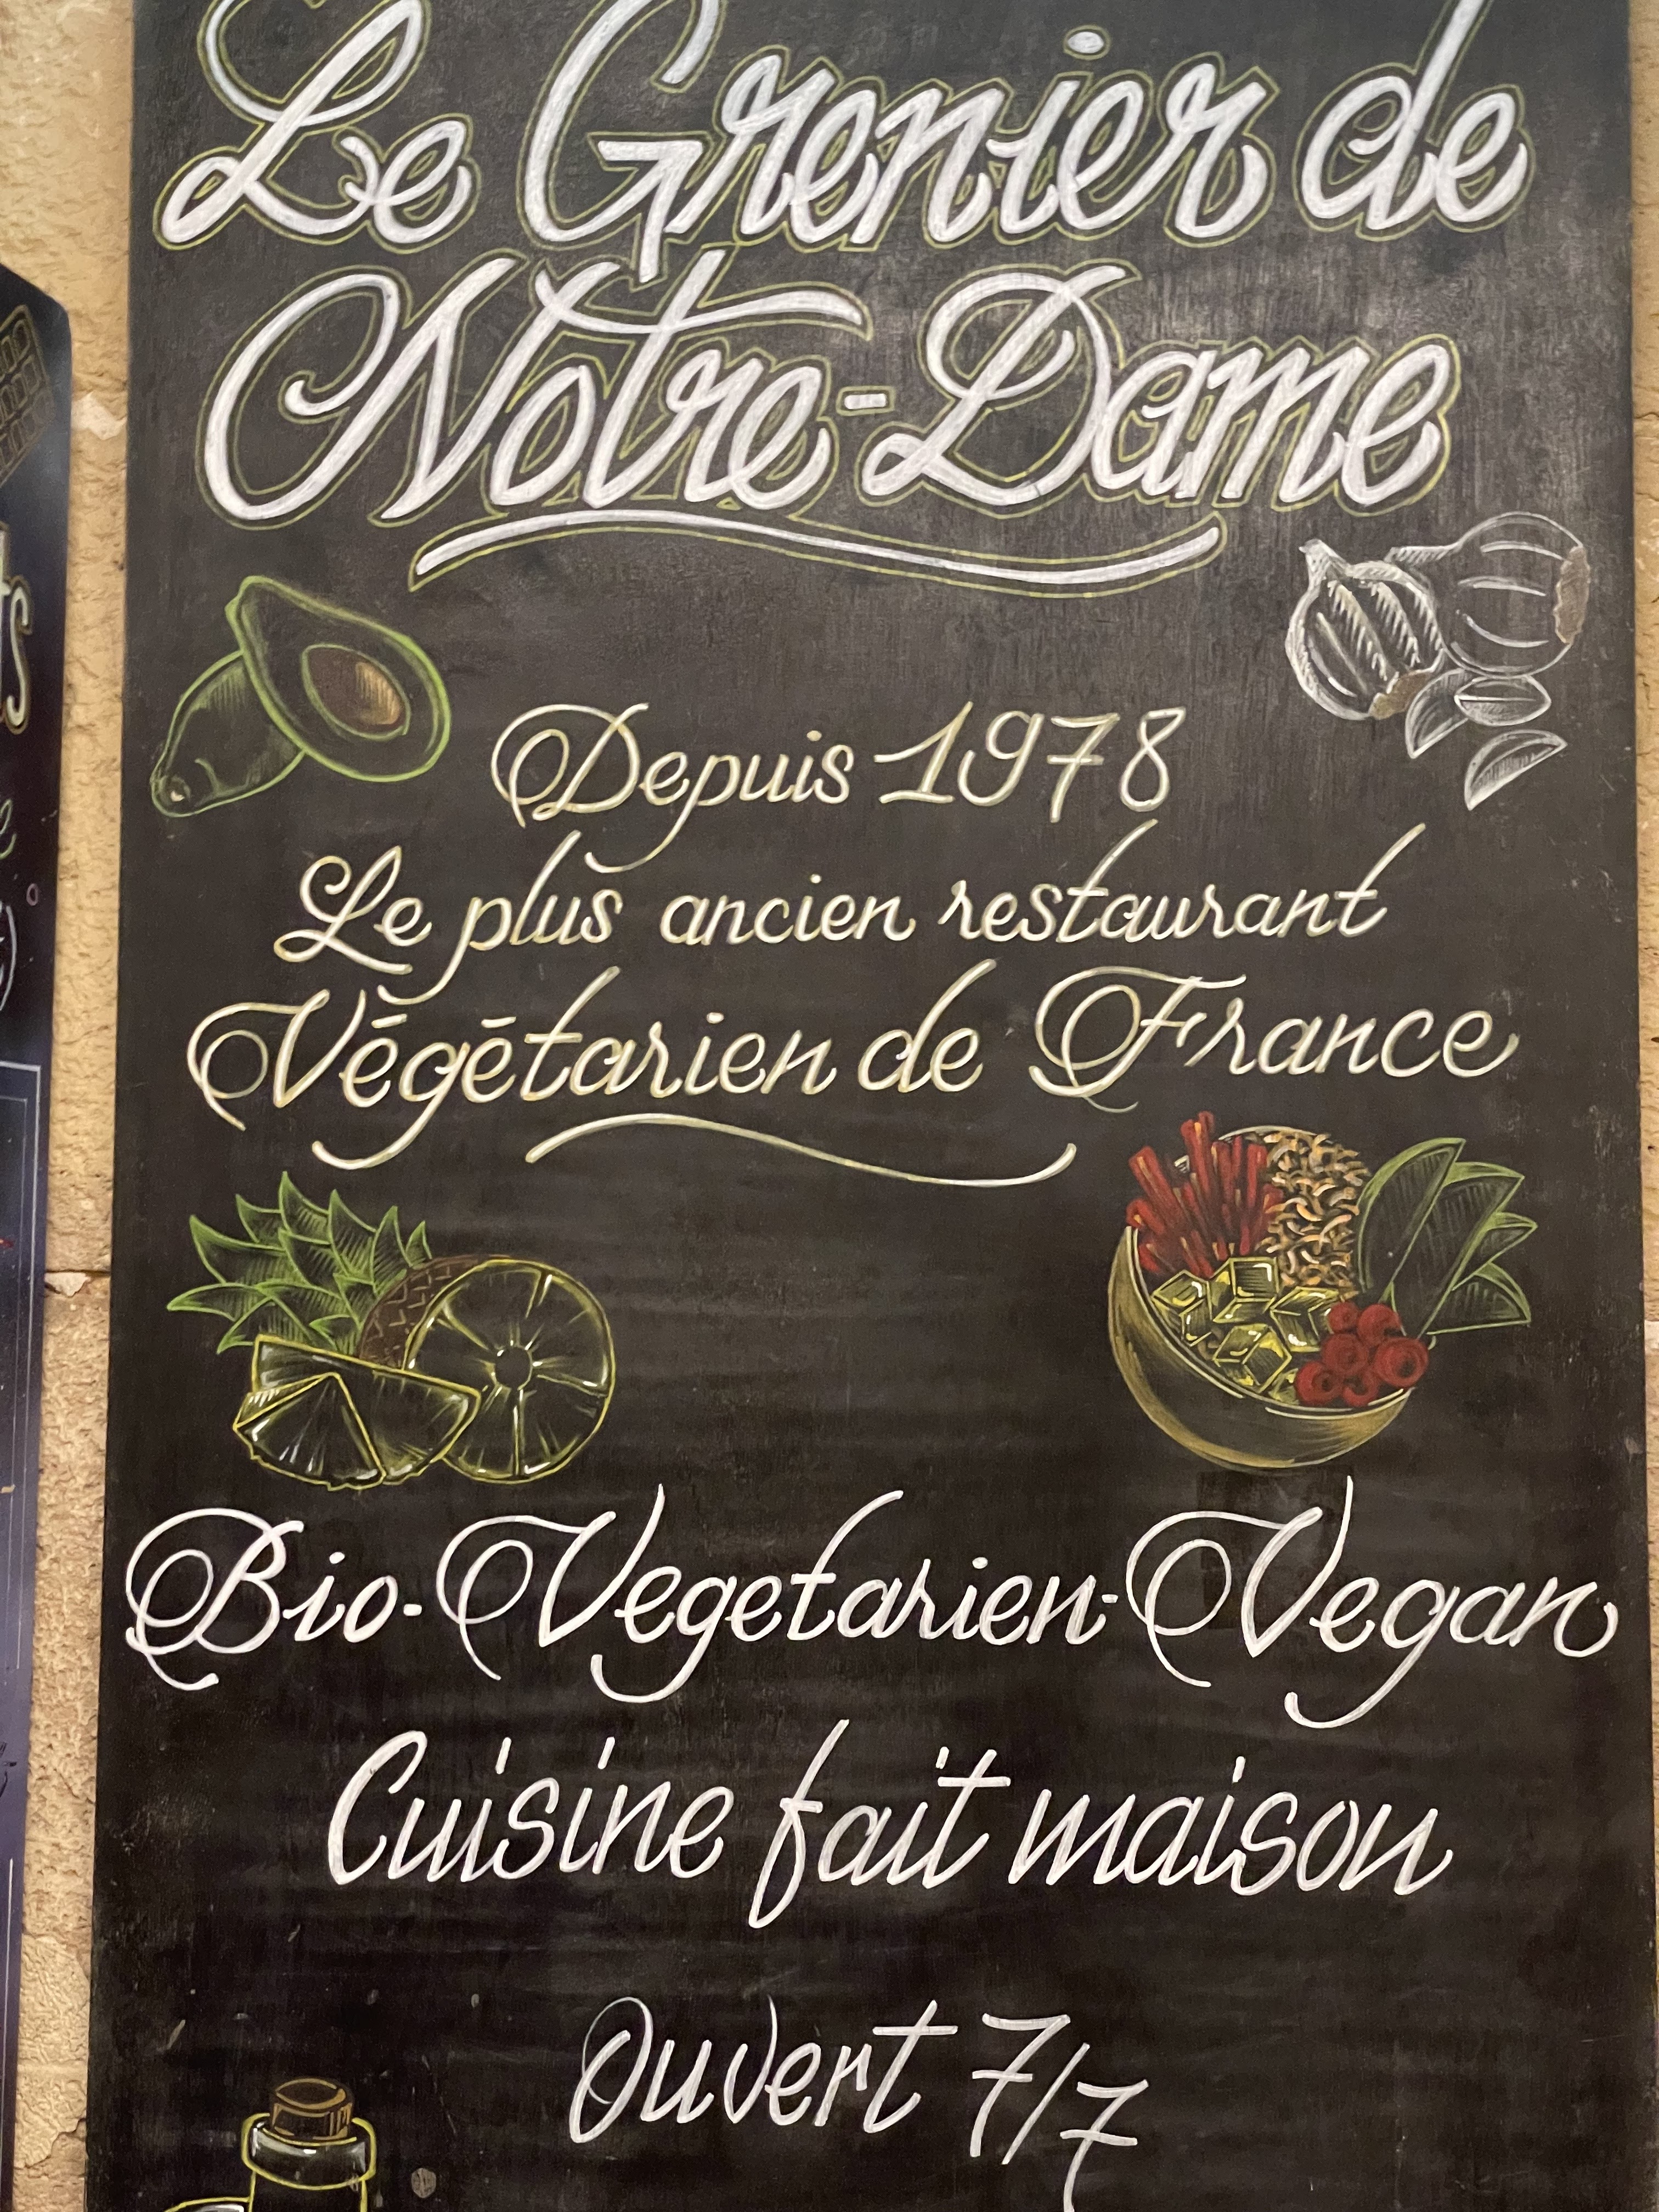 Le Grenier de
Notre-Dame
Depuis 1978
Le plus ancien restaurant
Végétarien de France
Bio-Vegetarien-Vegan
Cuisine fait maison
Ouvert 7/7